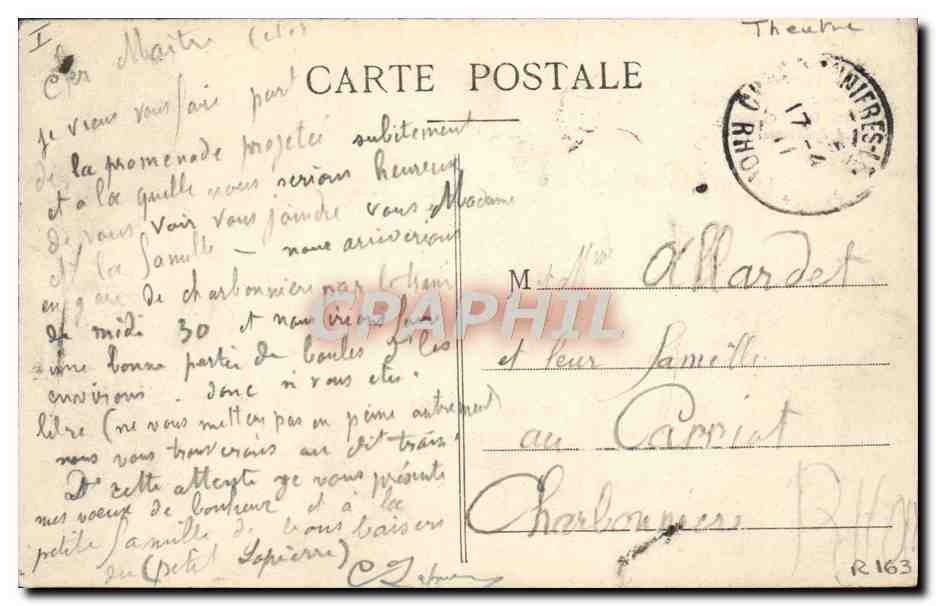 I
Cher Maître
je viens vous faire part
de la promenade projetée subitement
et à la quelle nous serions heureux
de vous voir vous joindre vous Madame
et la famille – nous arriverions
en gare de charbonnière par le train
de midi 30 et nous irions faire
une bonne partie de boules ds les
environs. donc si vous etes
libre (ne vous metter pas en peine autrement)
nous vous trouverais au dit train.
Ds cette attente je vous présente
mes voeux de bonheur et à la
petite famille de bons baisers
du (petit Lapierre)
Theatre
CARTE POSTALE
RHO
17 - 4
11
M et Mme Allardet
et leur famille
au Carriat
Charbonnières
Rhône
CPAPHIL
R 163